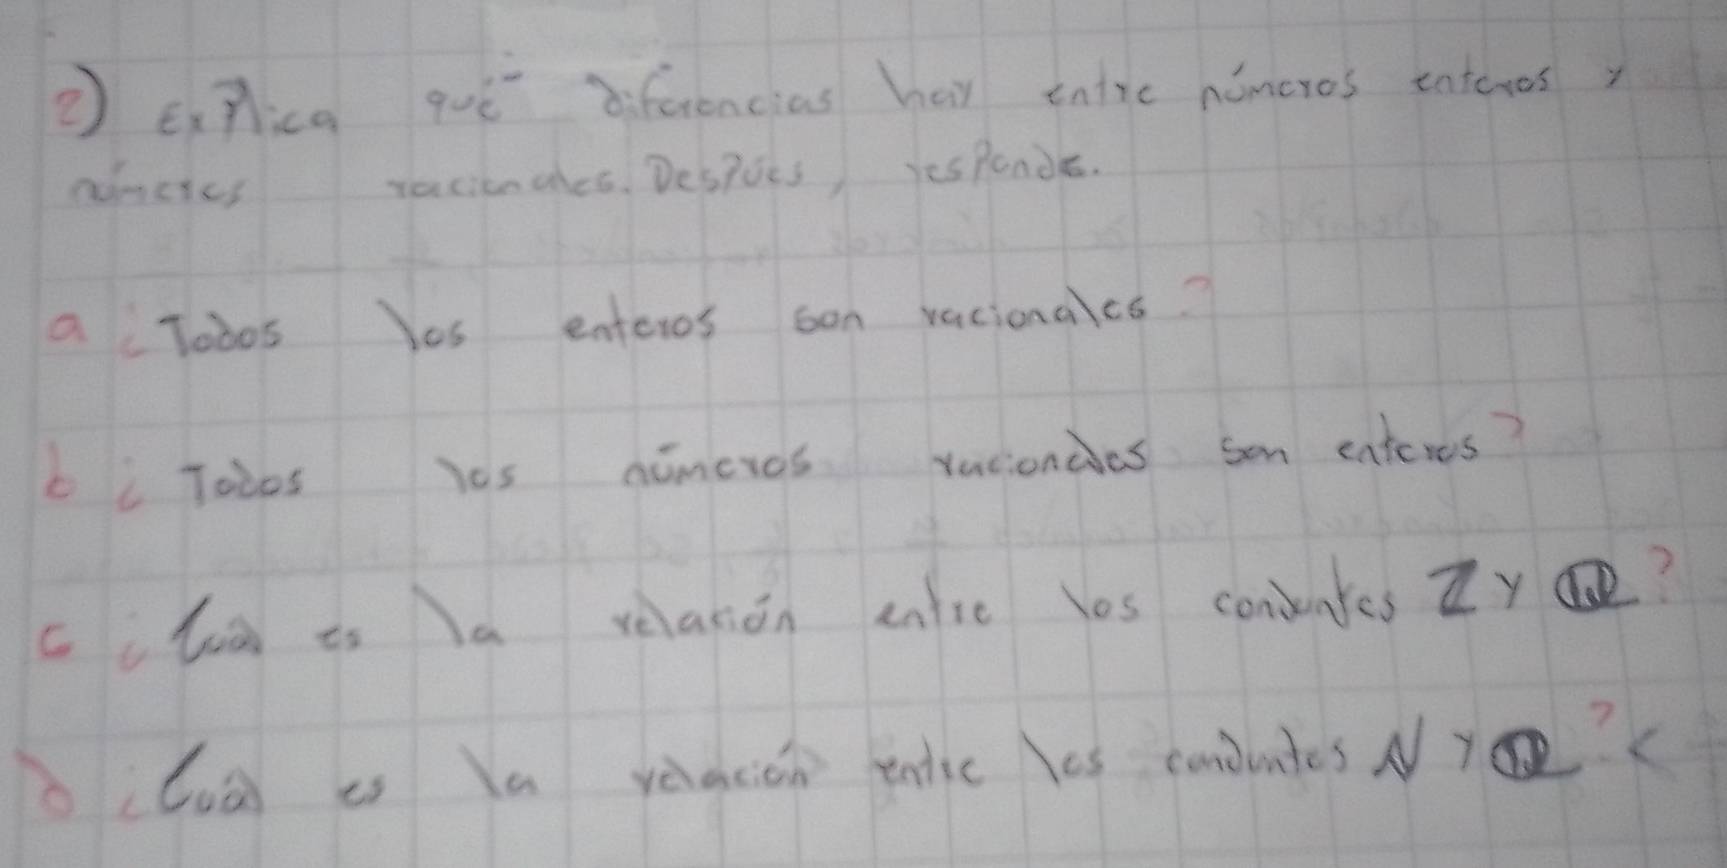 2) Explica qué diferencias hay entre números enteros y
números racionales. Después, responde.
a ¿Todos los enteros son racionales?
b ¿Todos los números racionales son enteros?
c ¿Cuál es la relación entre los conjuntos Z y Q?
d ¿Cuál es la relación entre los conjuntos N y Q?